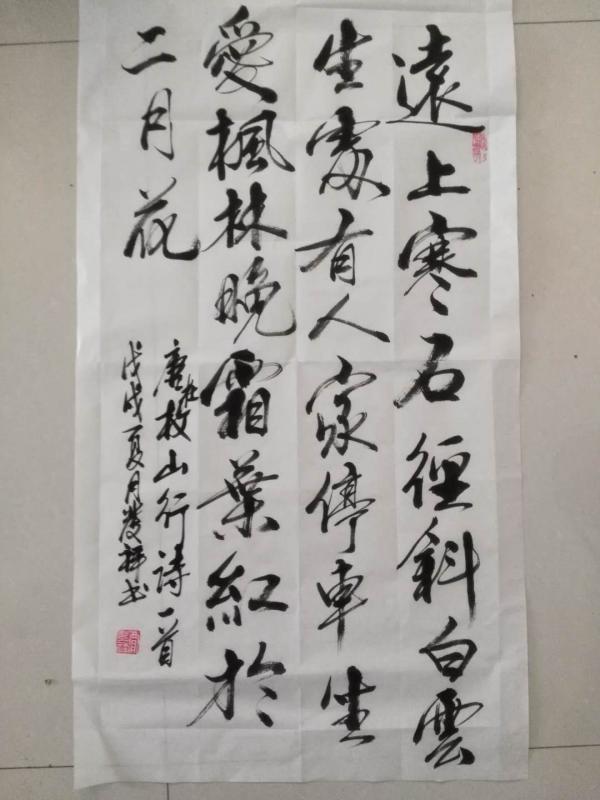 遠上寒石徑斜白雲
生處有人家停車坐
愛楓林晚霜葉紅於
二月花
唐杜牧山行詩一首
戊戌夏月發祥书